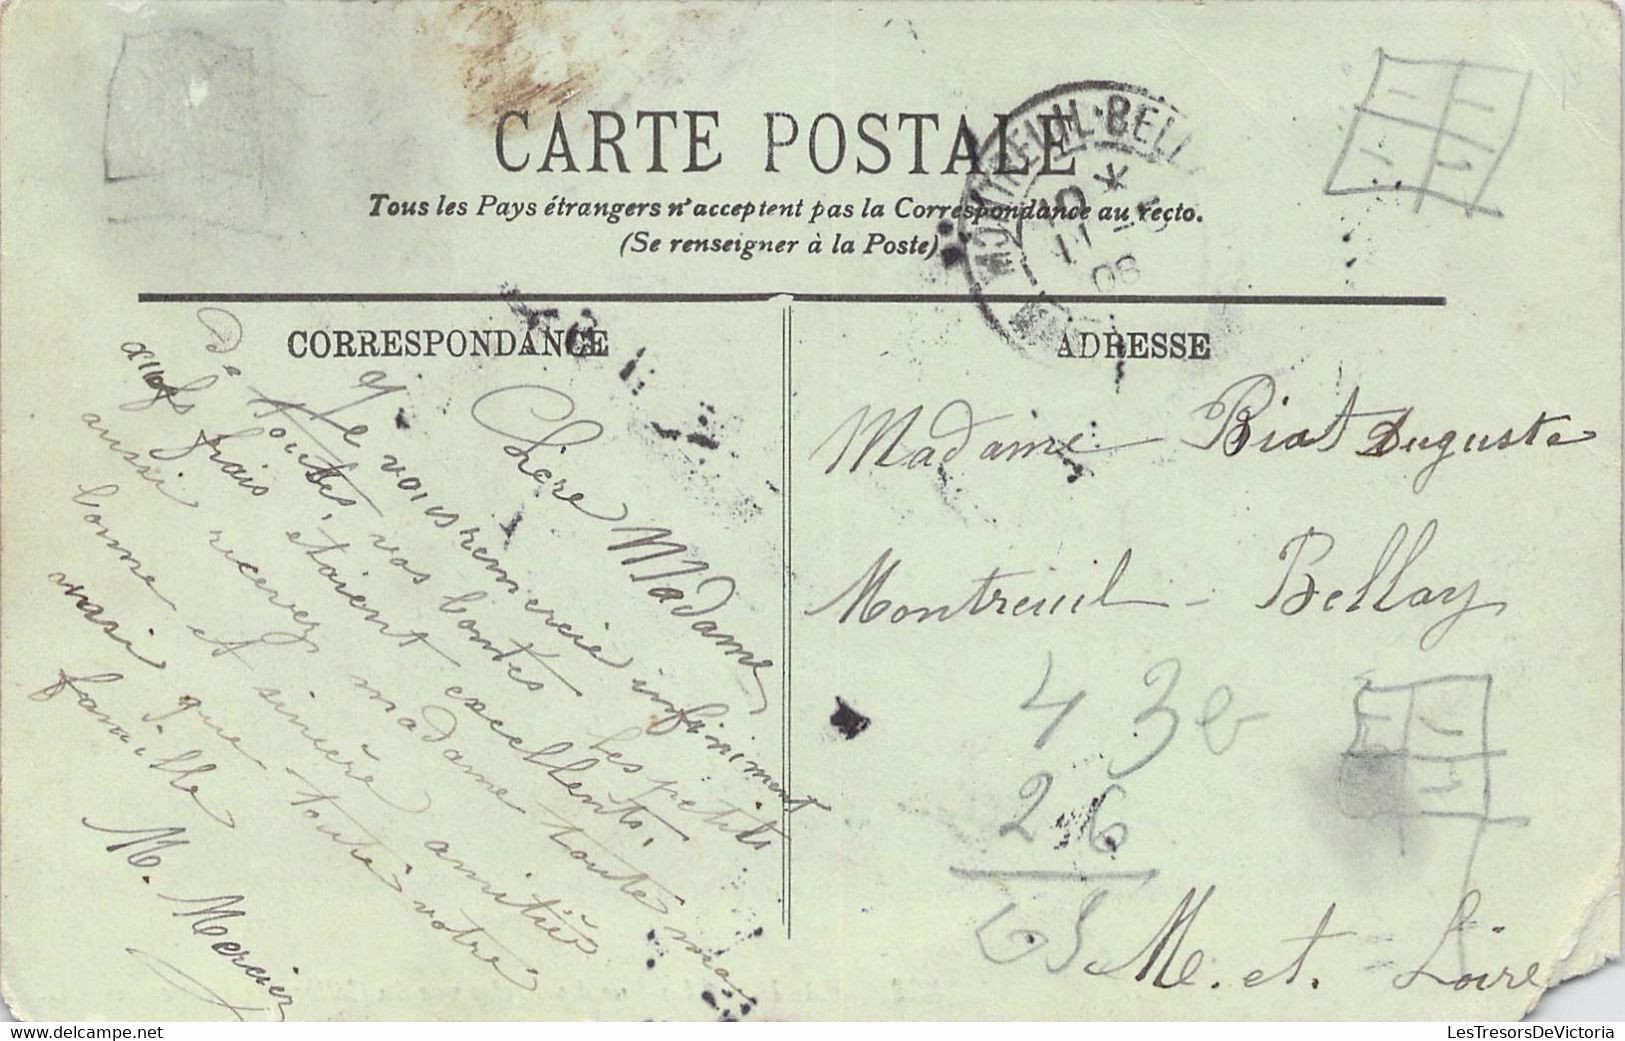 CARTE POSTALE
Tous les Pays étrangers n'acceptent pas la Correspondance au recto.
(Se renseigner à la Poste)
MONTREUIL-BELL
10 *
11 -
08
CORRESPONDANCE
ADRESSE
Chère Madame
Je vous remercie infiniment
De toutes vos bontés les petits
œufs frais étaient excellents,
aussi recevez madame toute ma
bonne et sincère amitiée
que toute votre
famille
M. Mercier
Madame Biat Auguste
Montreuil-Bellay
M. et. Loire
4 3
2 6
LesTresorsDeVictoria.com